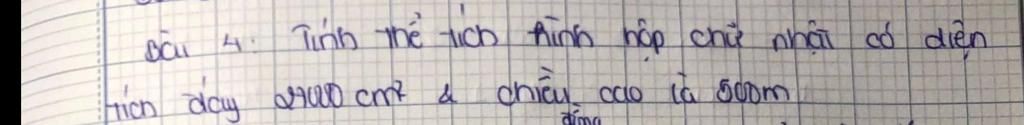 Bài 4: Tính thể tích hình hộp chữ nhật có diện
tích đáy 24000 cm² & chiều cao là 500m